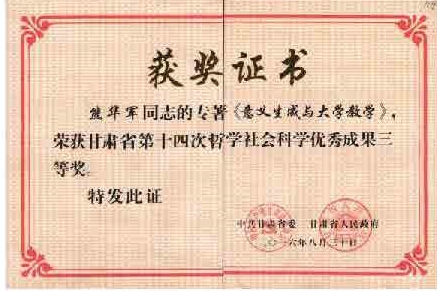 获奖证书
熊华军同志的专著《意义生成与大学教学》，
荣获甘肃省第十四次哲学社会科学优秀成果三
等奖。
特发此证
中共甘肃省委 甘肃省人民政府
二〇一六年八月三十日